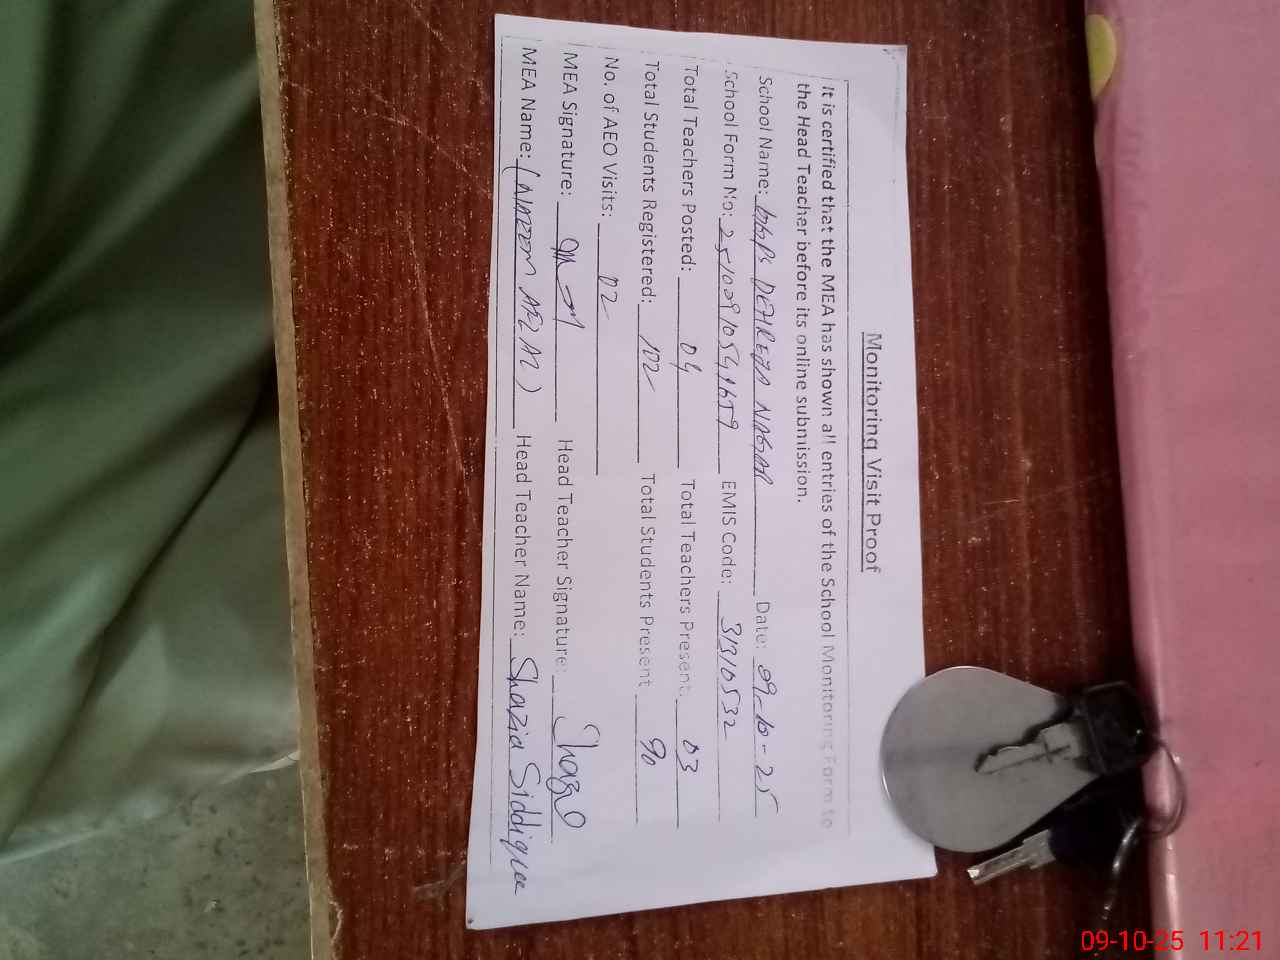 Monitoring Visit Proof
It is certified that the MEA has shown all entries of the School Monitoring Form to
the Head Teacher before its online submission.
School Name: DEHREJA NAGAR Date: 09-10-25
School Form No: EMIS Code: 31310532
Total Teachers Posted: 04 Total Teachers Present: 03
Total Students Registered: 122 Total Students Present 90
No. of AEO Visits: 02
MEA Signature: Head Teacher Signature:
MEA Name: Head Teacher Name: Shazia Siddiqua
09-10-25 11:21